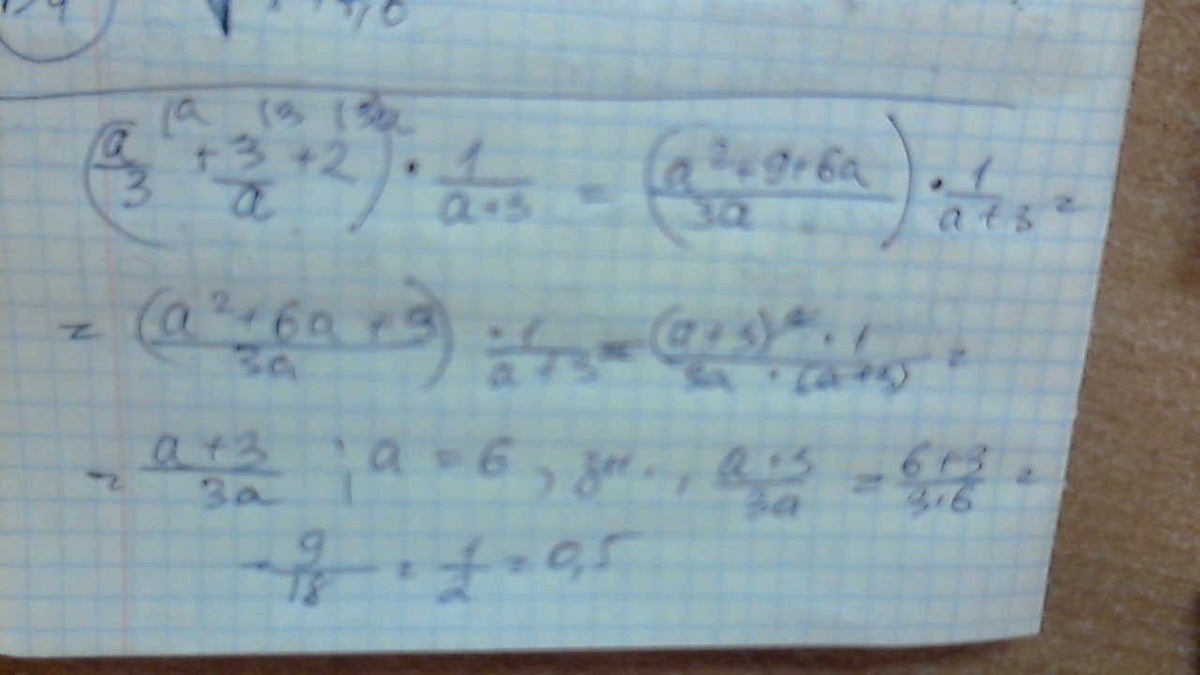 (a/3 + 3/a + 2) · 1/(a+3) = ((a²+9+6a)/3a) · 1/(a+3) =
= ((a²+6a+9)/3a) · 1/(a+3) = (a+3)² · 1/(3a · (a+3)) =
= (a+3)/3a ; a = 6, зн., (a+3)/3a = (6+3)/(3·6) =
= 9/18 = 1/2 = 0,5